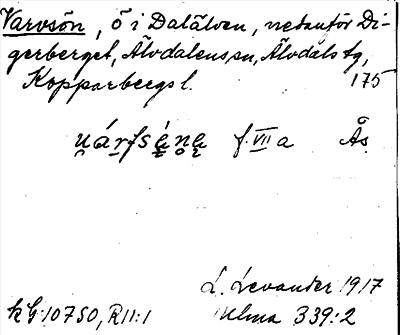 Varvsön, ö i Dalälven, nedanför Di-
gerberget, Älvdalens sn, Älvdals tg,
Kopparbergs l. 175
f. VII a Ås.
L. Levander 1917
kG:10750, R11:1 Ulma 339:2